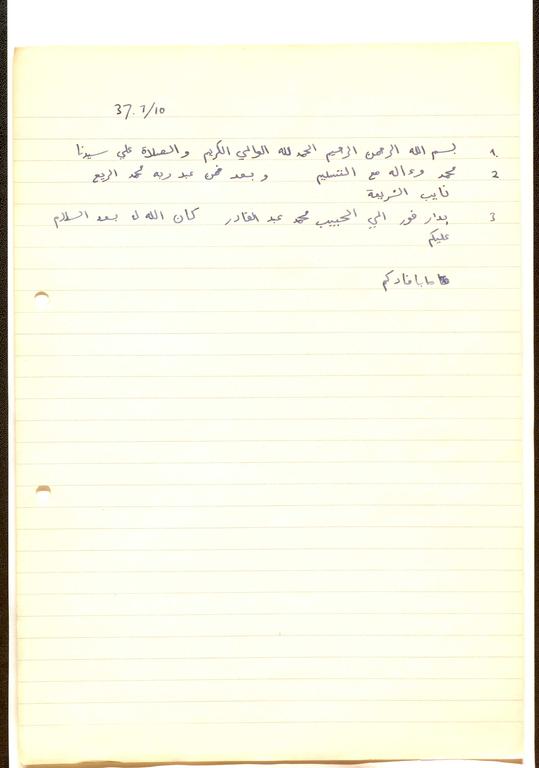 37.7/10
1. بسم الله الرحمن الرحيم الحمد لله الوالي الكريم والصلاة علي سيدنا
2 محمد وءاله مع التسليم وبعد فمن عبد ربه محمد الريع
نايب الشريعة
3 بدار فور الي الحبيب محمد عبد القادر كان الله له بعد السلام
عليكم